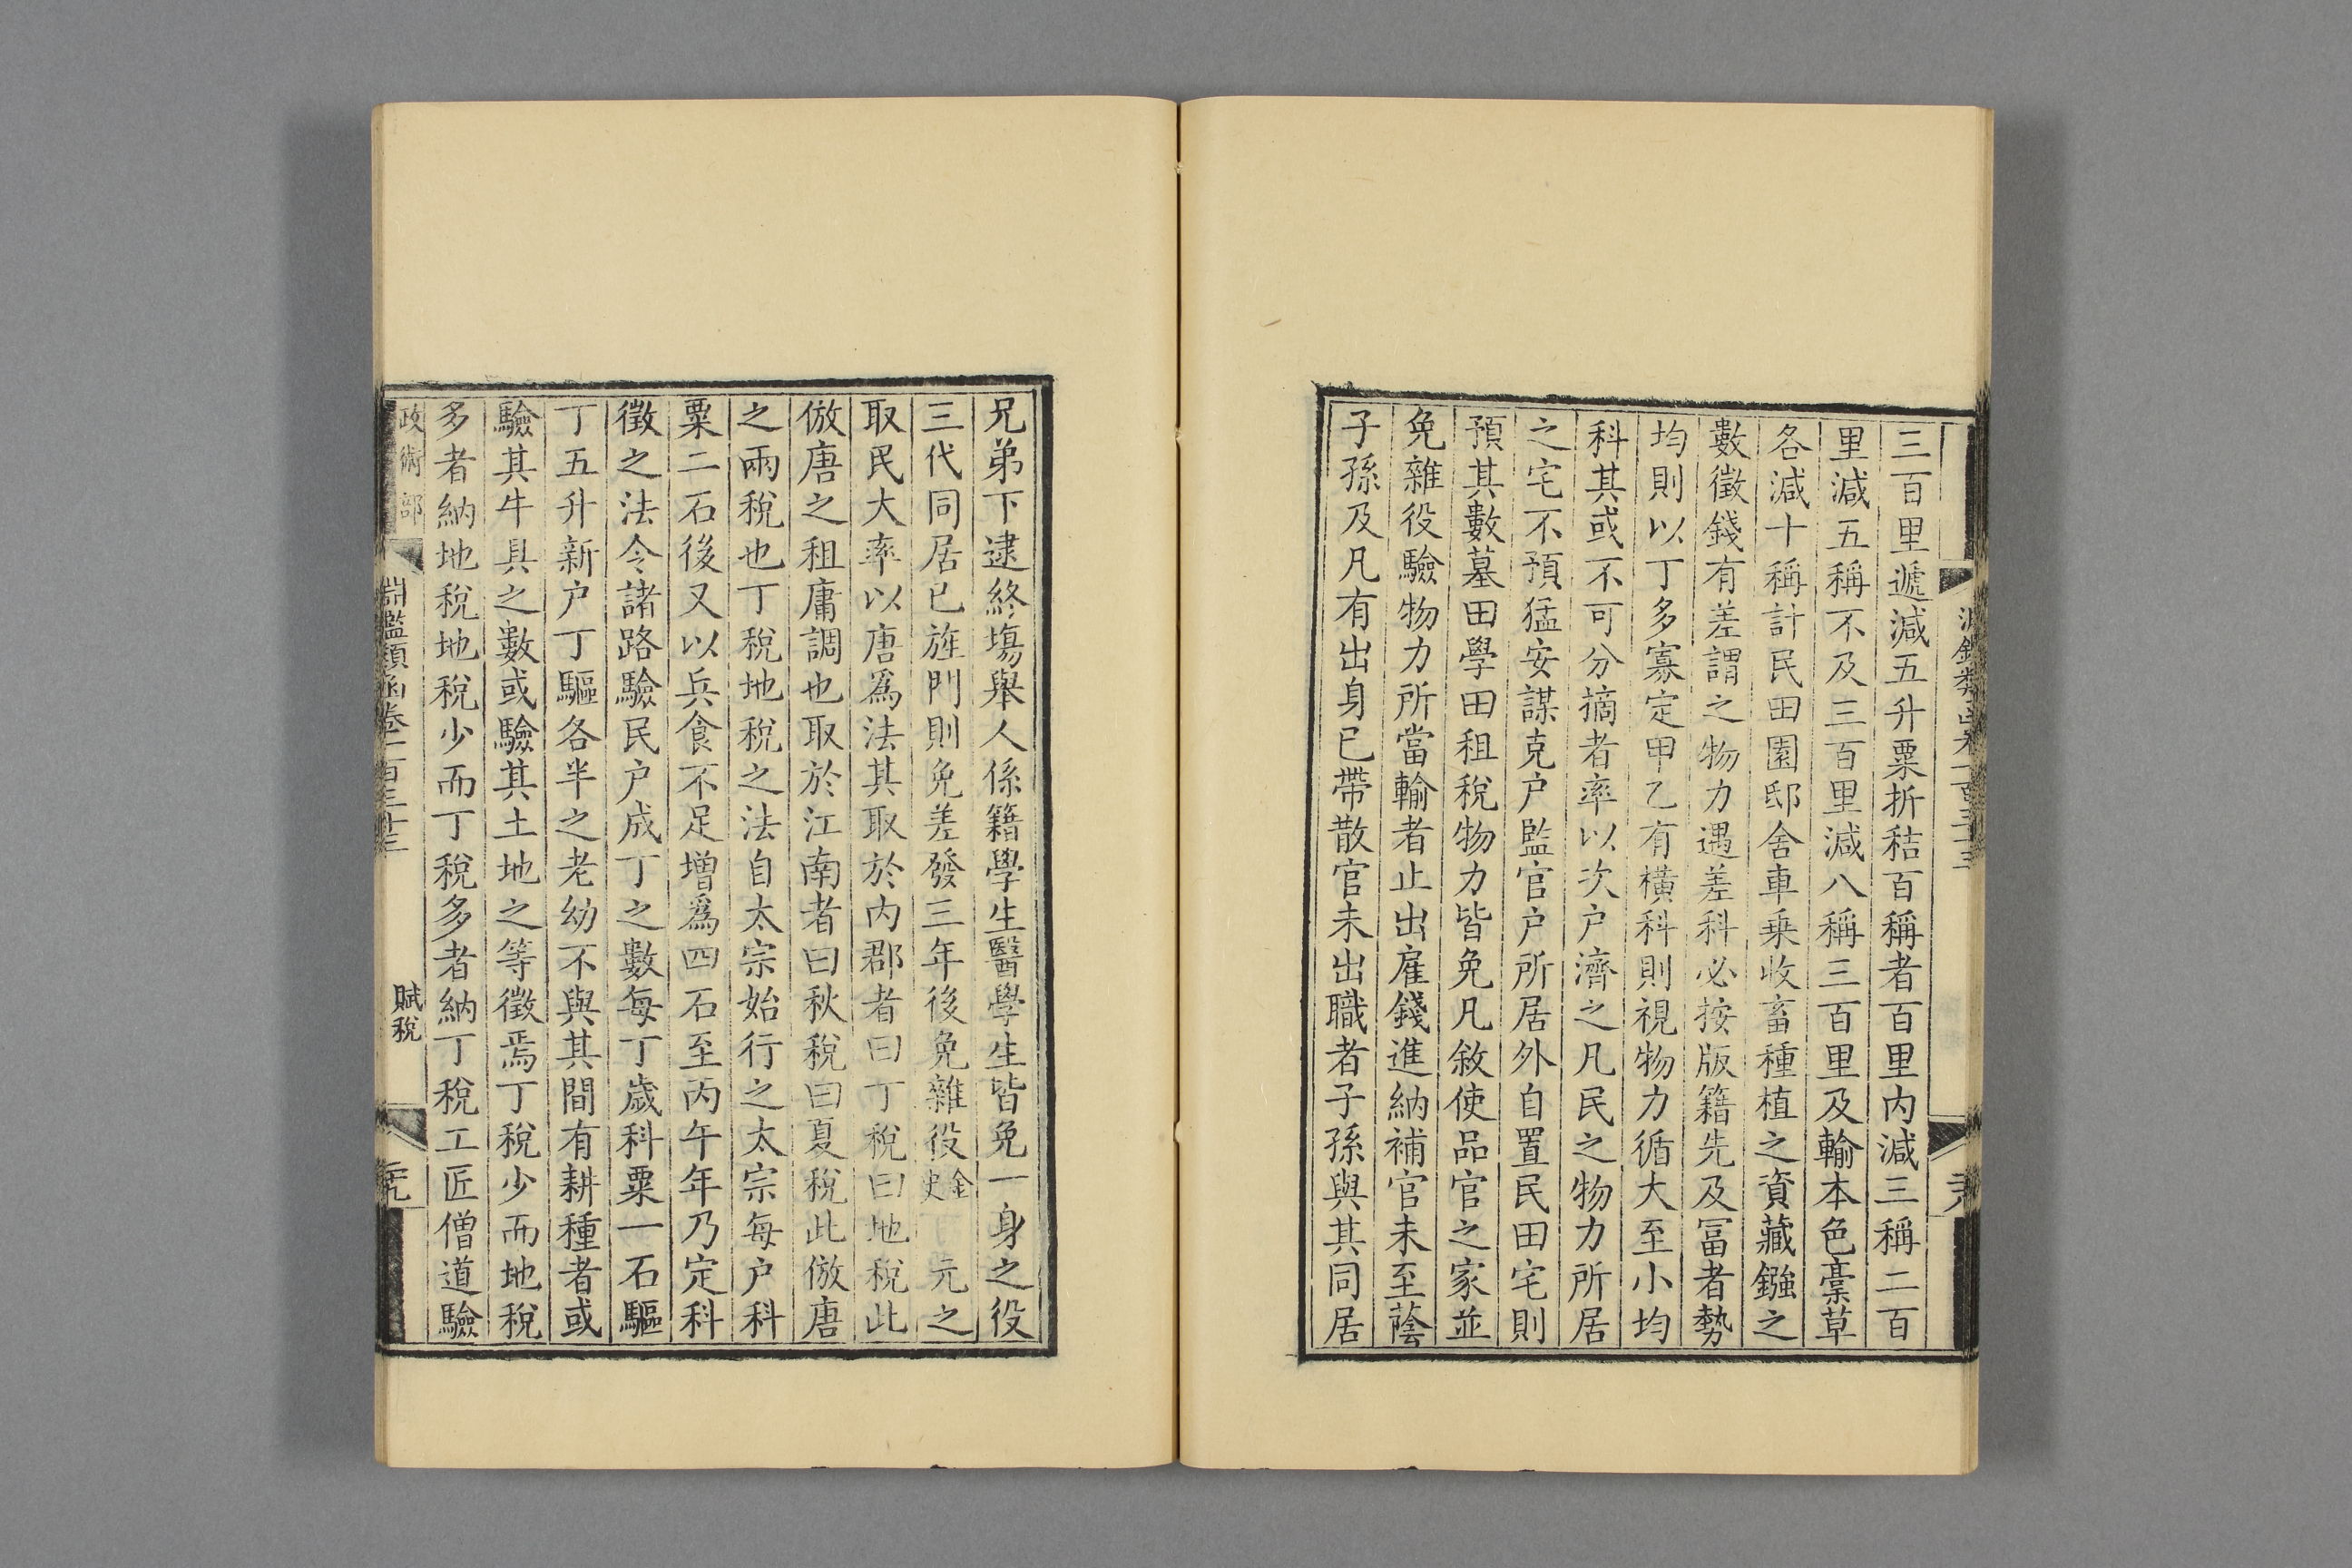 三百里遞減五升粟折秸百稱者百里內減三稱二百
里減五稱不及三百里減八稱三百里及輸本色藁草
各減十稱計民田園邸舍車乗收畜種植之資藏鏹之
數徵錢有差謂之物力遇差科必按版籍先及冨者勢
均則以丁多寡定甲乙有橫科則視物力循大至小均
科其或不可分摘者率以次户濟之凡民之物力所居
之宅不預猛安謀克户監官户所居外自置民田宅則
預其數墓田學田租稅物力皆免凡敘使品官之家並
免雜役驗物力所當輸者止出雇錢進納補官未至蔭
子孫及凡有出身已帶散官未出職者子孫與其同居
兄弟下逮終塲舉人係籍學生醫學生皆免一身之役
三代同居已旌門則免差發三年後免雜役金史 元之
取民大率以唐爲法其取於内郡者曰丁稅曰地稅此
倣唐之租庸調也取於江南者曰秋稅曰夏稅此倣唐
之兩稅也丁稅地稅之法自太宗始行之太宗每户科
粟二石後又以兵食不足增爲四石至丙午年乃定科
徵之法令諸路驗民户成丁之數每丁歲科粟一石驅
丁五升新户丁驅各半之老幼不與其間有耕種者或
驗其牛具之數或驗其土地之等徵焉丁稅少而地稅
多者納地稅地稅少而丁稅多者納丁稅工匠僧道驗
政術部 淵鑑類函卷一百三十三 賦稅